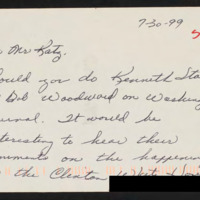 7-30-99
Mr Katz.
ould you do Kenneth Sta
Bob Woodward on Washing
urnal. It would be
teresting to hear their
mments on the happenin
the Clinton White Hous